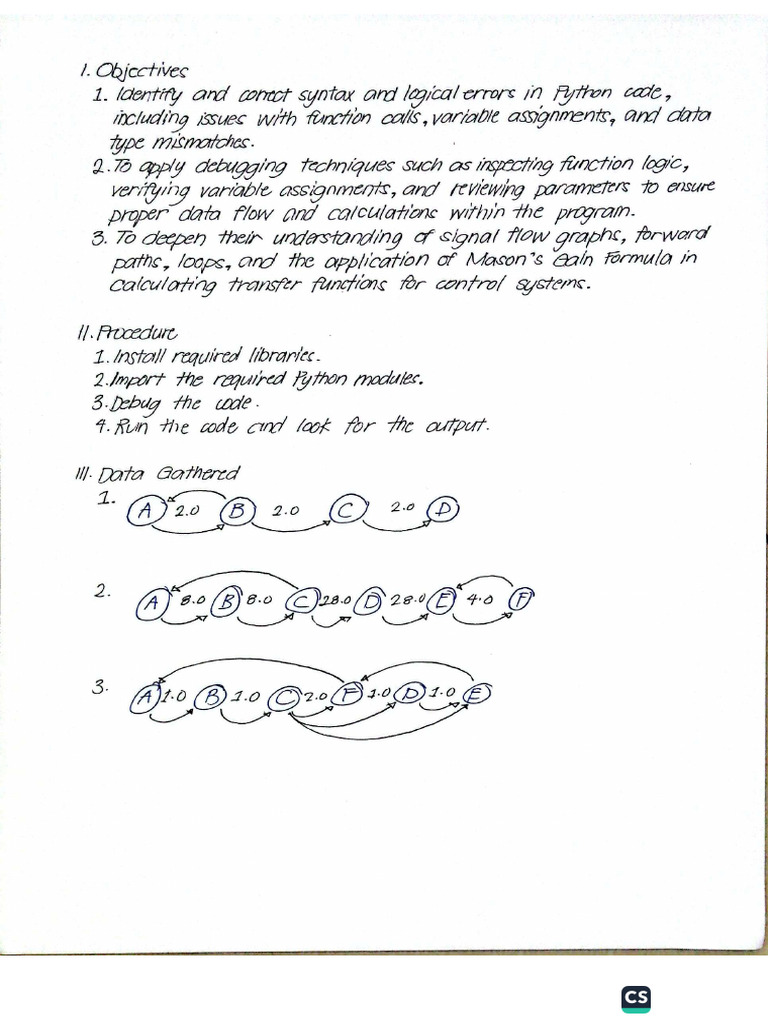 I. Objectives
1. Identify and correct syntax and logical errors in Python code,
including issues with function calls, variable assignments, and data
type mismatches.
2. To apply debugging techniques such as inspecting function logic,
verifying variable assignments, and reviewing parameters to ensure
proper data flow and calculations within the program.
3. To deepen their understanding of signal flow graphs, forward
paths, loops, and the application of Mason's Gain Formula in
calculating transfer functions for control systems.
II. Procedure
1. Install required libraries.
2. Import the required Python modules.
3. Debug the code.
4. Run the code and look for the output.
III. Data Gathered
1. A 2.0 B 2.0 C 2.0 D
2. A 8.0 B 8.0 C 28.0 D 28.0 E 4.0 F
3. A 1.0 B 1.0 C 2.0 F 1.0 D 1.0 E
CS